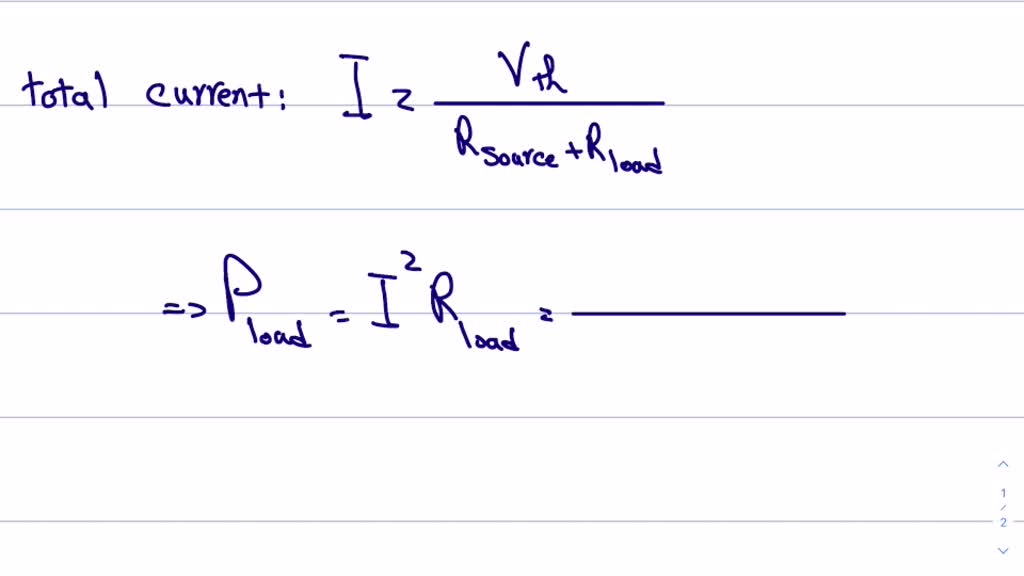 total current: I = V_th / (R_source + R_load)
=> P_load = I² R_load = ______
1
/
2